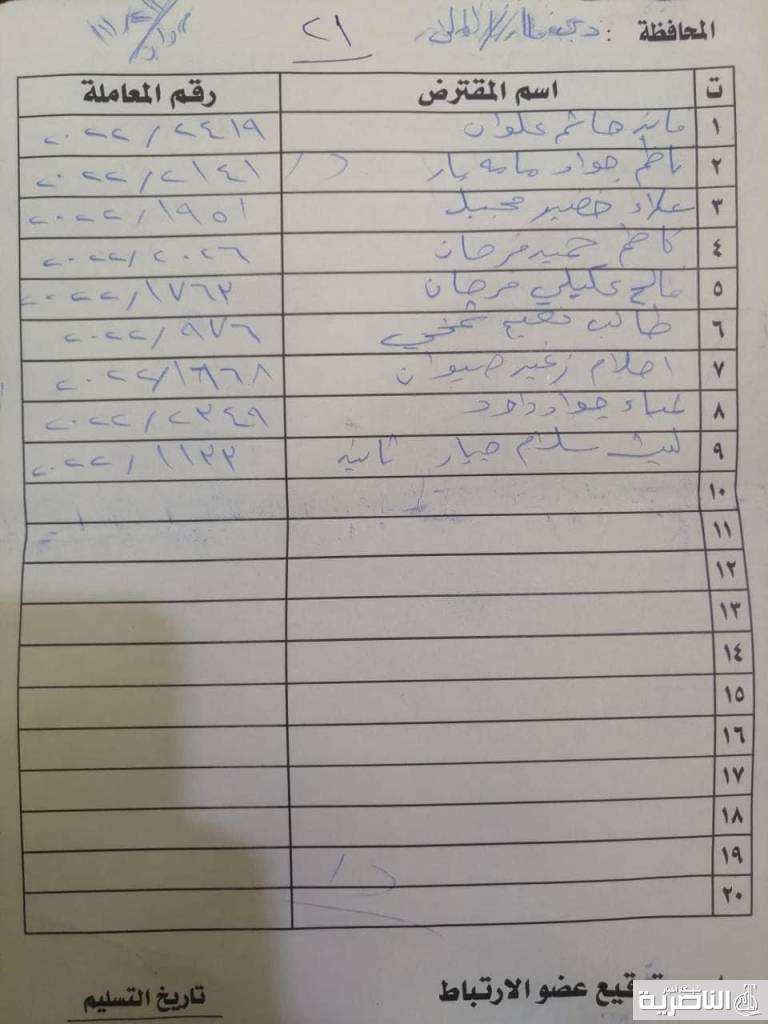 المحافظة : ذي قار / الاولى
٢١
ت اسم المقترض رقم المعاملة
١ هاشم علوان ٢٤١٩ / ٢٠٢٢
٢ ناظم جواد ٢١٤١ / ٢٠٢٢
٣ علاء خضير محيبل ١٩٥١ / ٢٠٢٢
٤ كاظم حميد فرحان ٢٠٢٦ / ٢٠٢٢
٥ فالح عكيلي فرحان ١٧٦٣ / ٢٠٢٢
٦ طالب شمخي ٩٧٦ / ٢٠٢٢
٧ احلام زغير صيوان / ٢٠٢٢
٨ لمياء جواد داود ٢٣٤٩ / ٢٠٢٢
٩ ليث سلام جبار ثانية ١١٣٣ / ٢٠٢٢
١٠
١١
١٢
١٣
١٤
١٥
١٦
١٧
١٨
١٩
٢٠
عضو الارتباط
تاريخ التسليم
شبكة أخبار
الناصرية